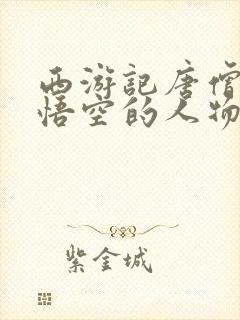 西游記唐僧
悟空的人物
紫金城